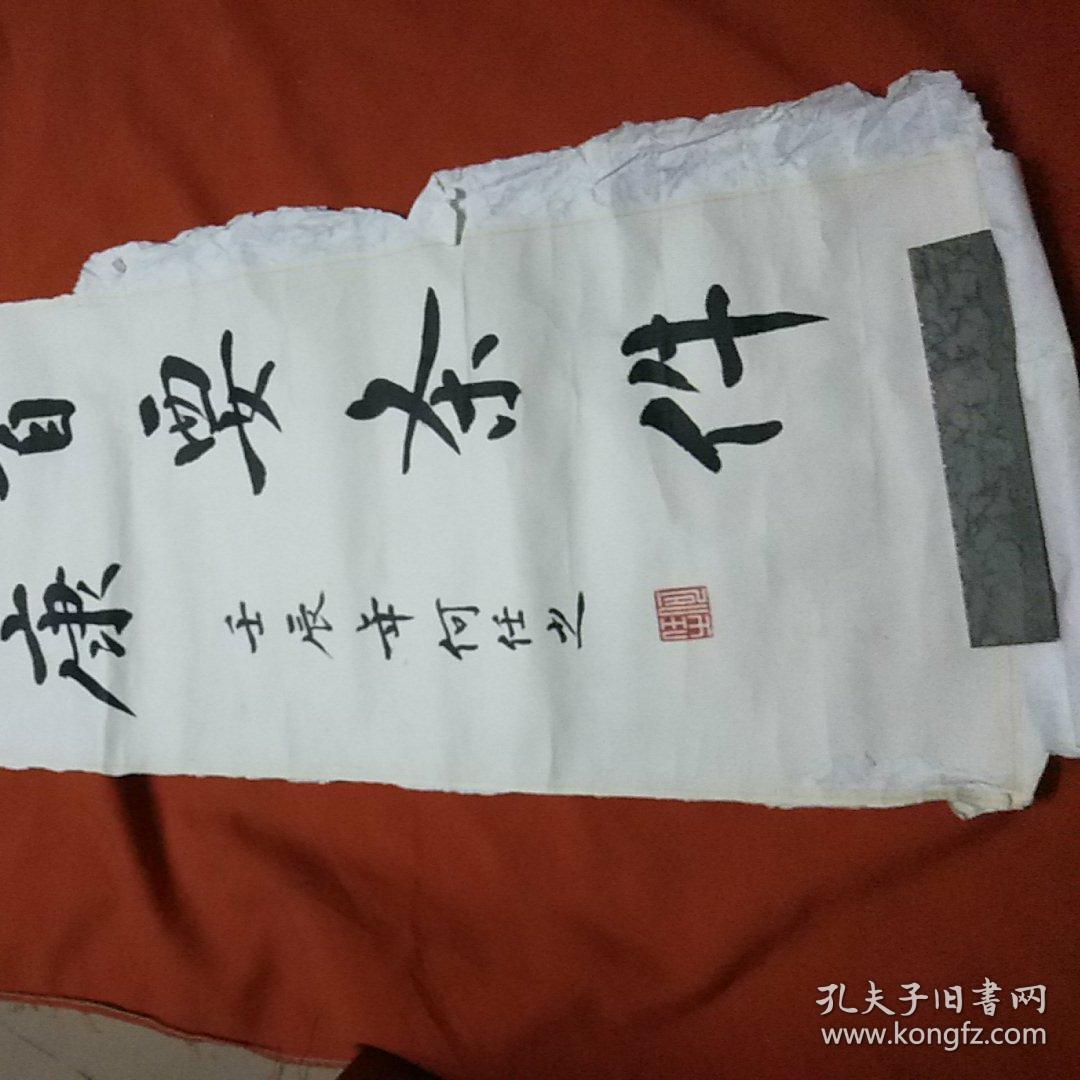 首要条件
康
壬辰年何任之
孔夫子旧書网
www.kongfz.com